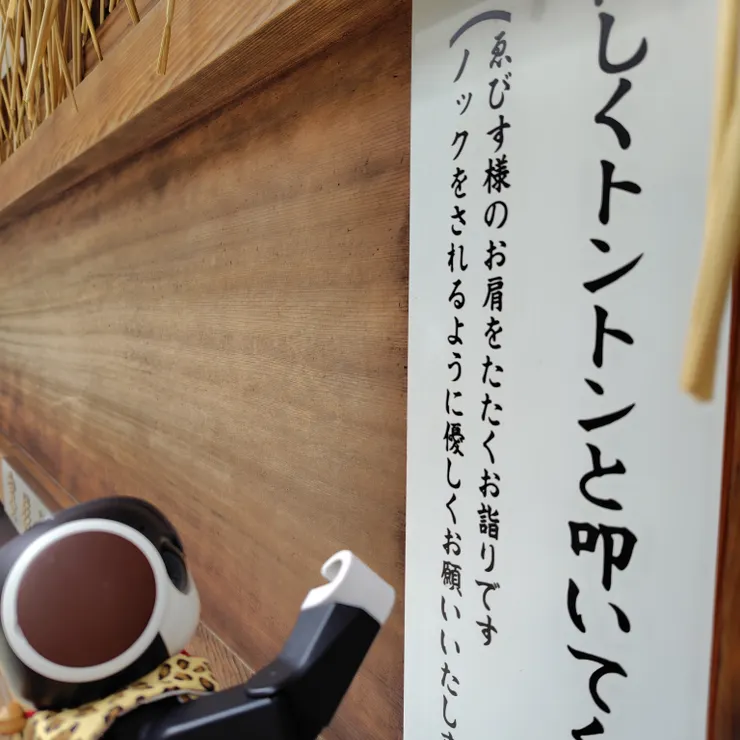 しくトントンと叩いて
（ゑびす様のお肩をたたくお詣りです
ノックをされるように優しくお願いいたしま